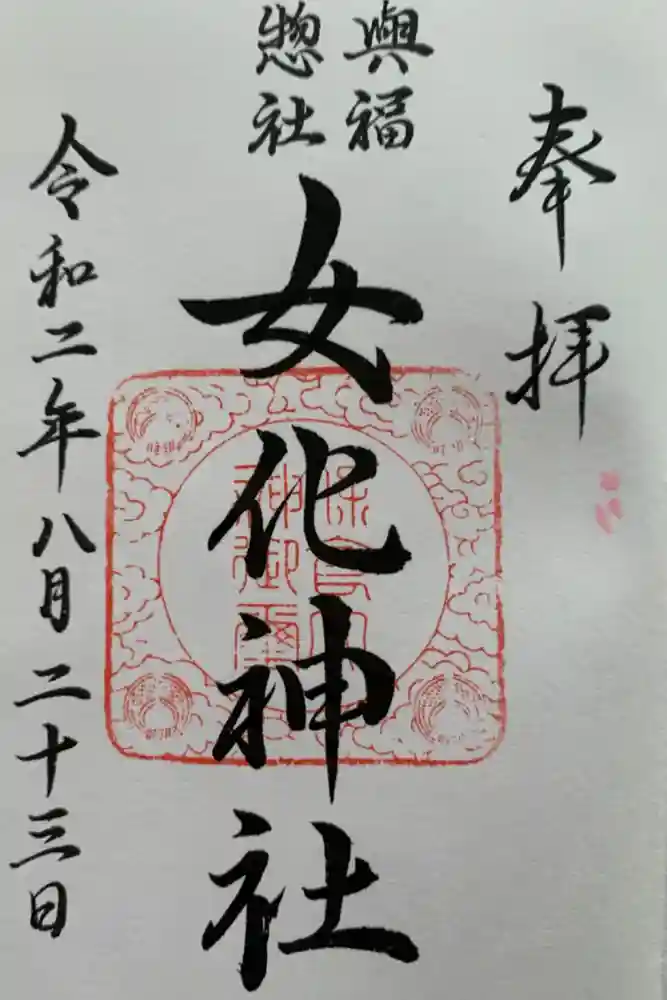 奉拝
興福
惣社
女化神社
令和二年八月二十三日